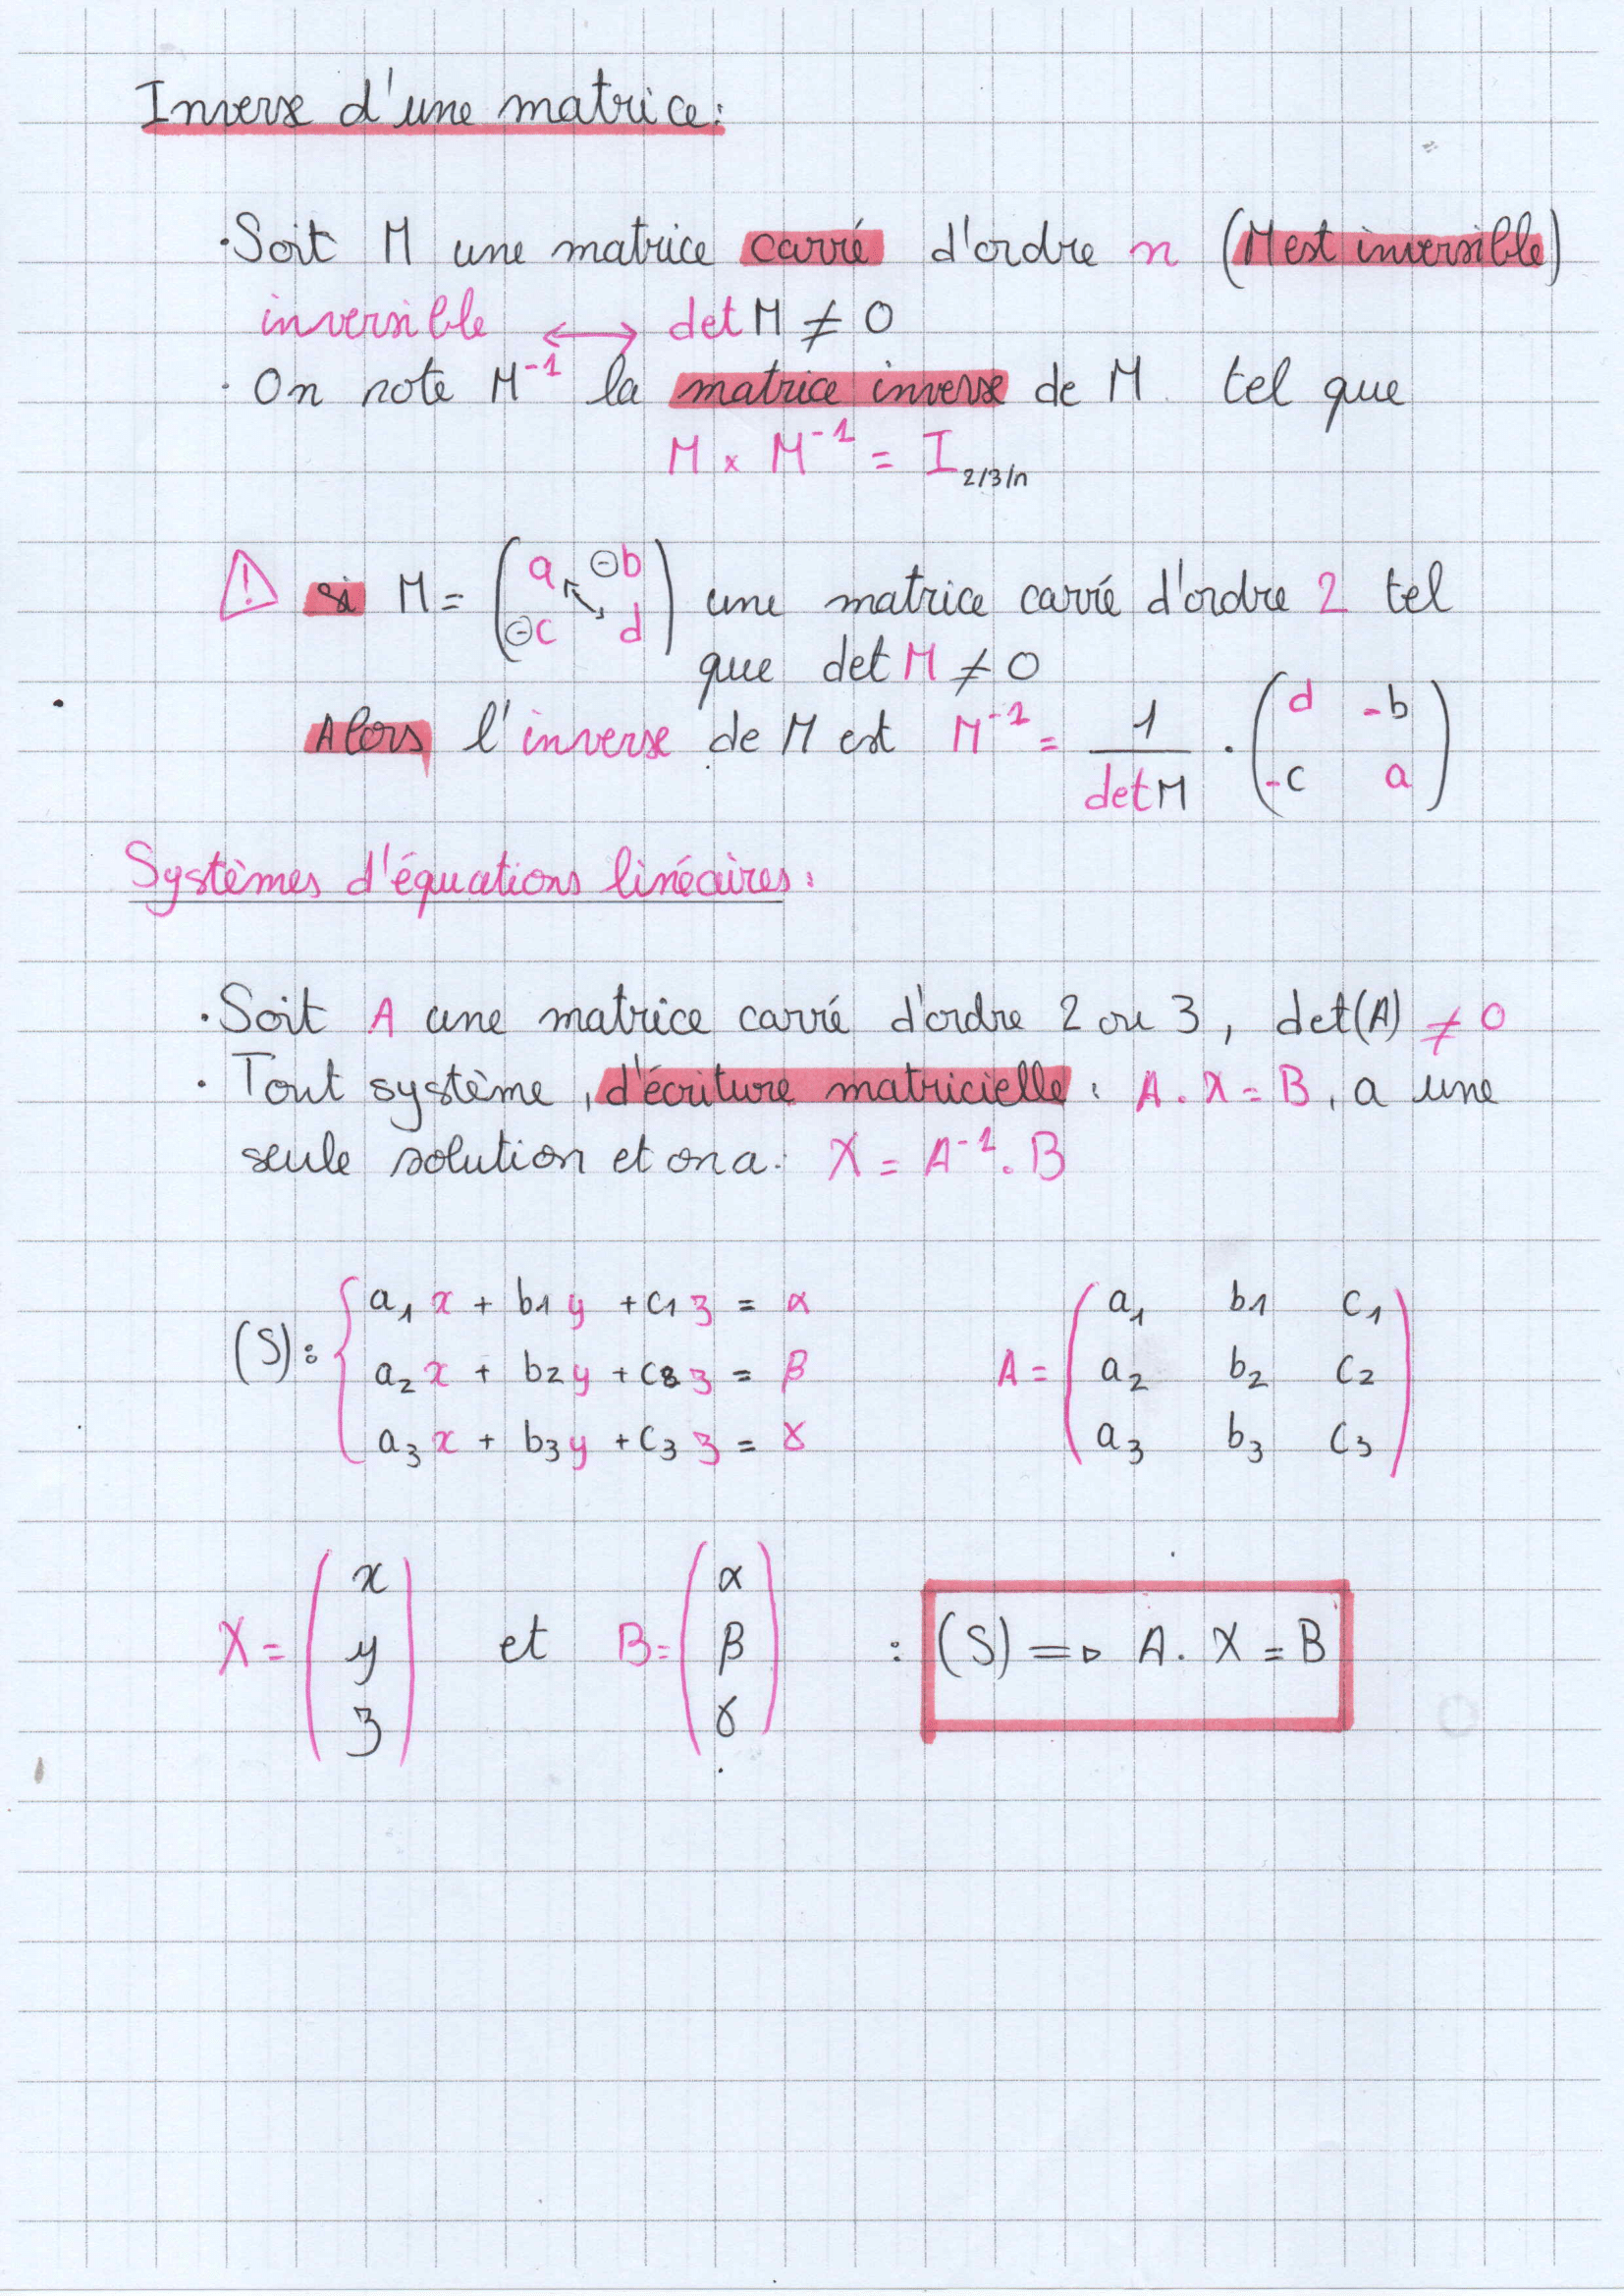 Inverse d'une matrice:
·Soit M une matrice carré d'ordre n (M est inversible)
inversible ⟷ det M ≠ 0
· On note M⁻¹ la matrice inverse de M tel que
M × M⁻¹ = I 2/3/n
⚠ si M = ( a ⊖b
⊖c d ) une matrice carré d'ordre 2 tel
que det M ≠ 0
Alors l'inverse de M est M⁻¹ = 1/det M · ( d -b
-c a )
Systèmes d'équations linéaires:
· Soit A une matrice carré d'ordre 2 ou 3, det(A) ≠ 0
· Tout système, d'écriture matricielle : A. X = B, a une
seule solution et on a: X = A⁻¹. B
(S): { a₁x + b₁y + c₁z = α
a₂x + b₂y + c₂z = β
a₃x + b₃y + c₃z = γ
A = ( a₁ b₁ c₁
a₂ b₂ c₂
a₃ b₃ c₃ )
X = ( x
y
z )
et B = ( α
β
γ )
: (S) => A. X = B